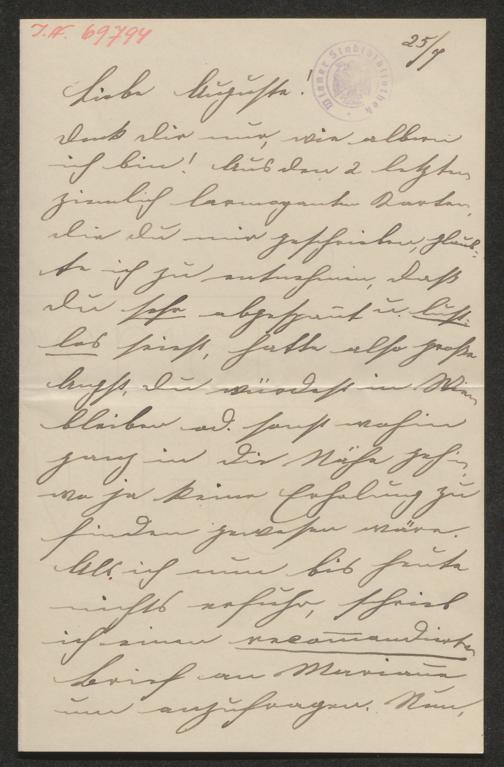 I.N. 69794
25/7
Wiener Stadtbibliothek
Liebe Auguste!
Denk dir nur, wie albern
ich bin! Aus den 2 letzten,
ziemlich larmoyanten Karten,
die du mir geschrieben, glaub-
te ich zu entnehmen, daß
du sehr abgespannt u. lust-
los seist, hatte also große
Angst, du würdest in Wien
bleiben od. sonst wohin
ganz in die Nähe gehn,
wo ja keine Erholung zu
finden gewesen wäre.
Als ich nun bis heute
nichts erfuhr, schrieb
ich einen recommandierten
Brief an Marianne
um anzufragen. Nun,